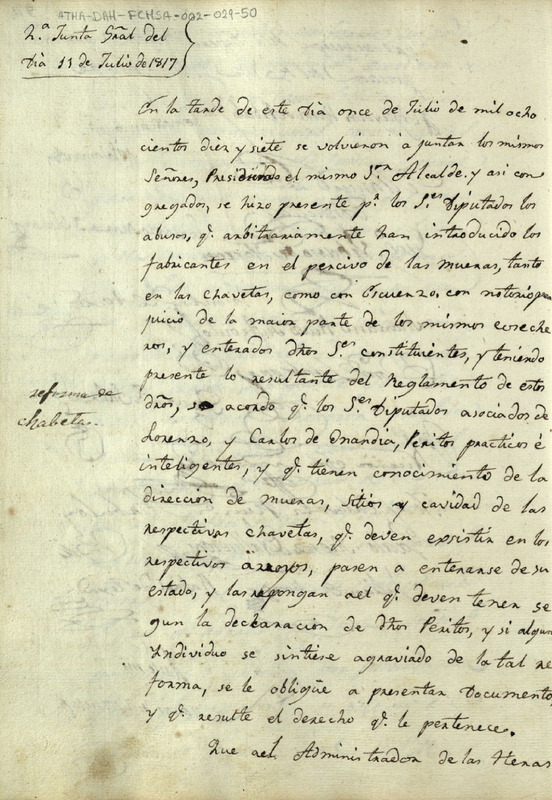 ATHA-DAH-FCHSA-002-029-50
2.ª Junta Gral del
Dia 11 de Julio de 1817
En la tarde de este Dia once de Julio de mil ocho
cientos diez y siete se volvieron à juntar los mismos
Señores, Presidiendo el mismo S.r Alcalde. y asi con
gregados, se hizo presente p.r los S.res Diputados los
abusos, q.e arbitrariamente han introducido los
fabricantes en el percivo de las mueras, tanto
en las chavetas, como con Escuerzo, con notorio per
juicio de la maior parte de los mismos coseche
ros, y enterados dhos S.res constituientes, y teniendo
presente lo resultante del Reglamento de estos
dhos, se acordo q.e los S.res Diputados asociados de
Lorenzo, y Carlos de Onandia, Peritos practicos è
inteligentes, y q.e tienen conocimiento de la
direccion de mueras, sitios y cavidad de las
respectivas chavetas, q.e deven epsistir en los
respectivos arroyos, pasen a enterarse de su
estado, y las repongan ael q.e deven tener se
gun la declaracion de dhos Peritos, y si algun
Individuo se sintiese agraviado de la tal re
forma, se le obligüe a presentar Documento,
y q.e resulte el derecho q.e le pertenece.
reforma de
chabetas.
Que ael Administrador de las Heras